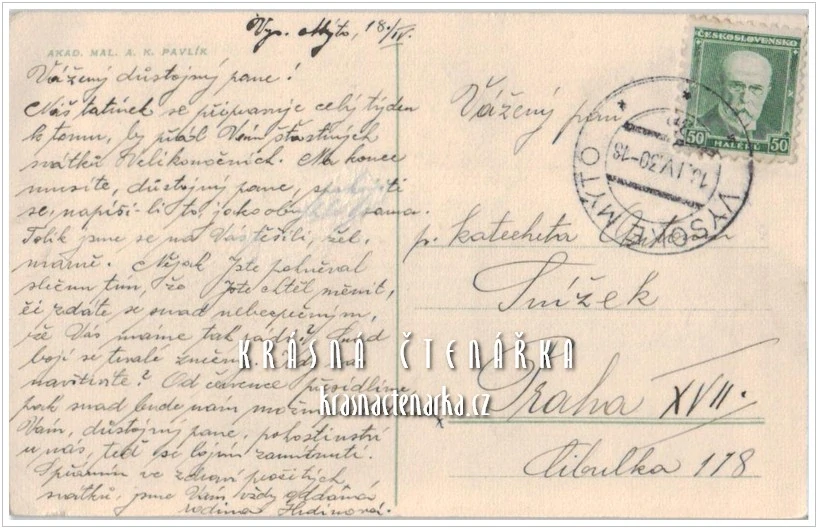 Vys. Mýto, 18./IV.
AKAD. MAL. A. K. PAVLÍK
Vážený důstojný pane!
Náš tatínek se připravuje celý týden
k tomu, by přál Vám šťastných
svátků Velikonočních. Na konec
musíte, důstojný pane, spokojiti
se, napíši-li to, jako sama.
Tolik jsme se na Vás těšili, žel,
marně. Nějak Jste pohněval
slečnu tím, že Jste chtěl měnit,
či zdáte se snad nebezpečným,
že Vás máme tak rádi? Snad
bojí se
navštívíte? Od července přesídlíme
pak snad bude nám
Vám, důstojný pane, pohostinství
u nás, teď se bojím zamítnutí.
S přáním ve zdraví prožitých
svátků, jsme Vám vždy oddána
rodina
ČESKOSLOVENSKO
50 HALÉŘŮ 50
VYSOKÉ MÝTO
18.IV.30-18
Vážený pan
p. katecheta
Snížek
Praha XVII.
Cibulka 118
KRÁSNÁ ČTENÁŘKA
krasnactenarka.cz